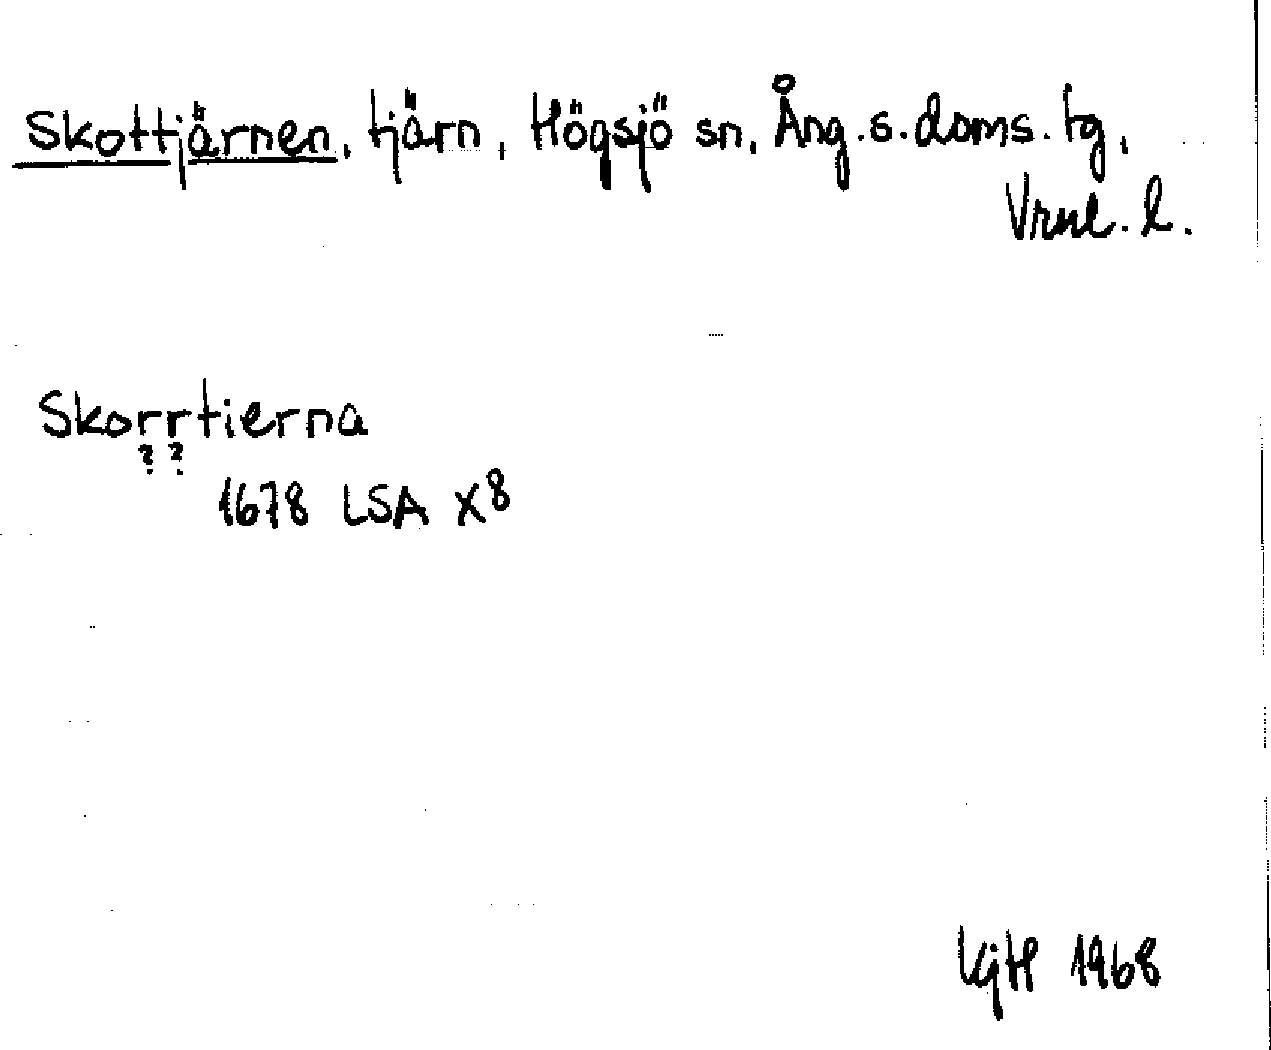 Skottjärnen, tjärn, Högsjö sn, Ång.s.doms.tg,
Vrnl. l.
Skorrtierna
? ?
1678 LSA X8
KjH 1968